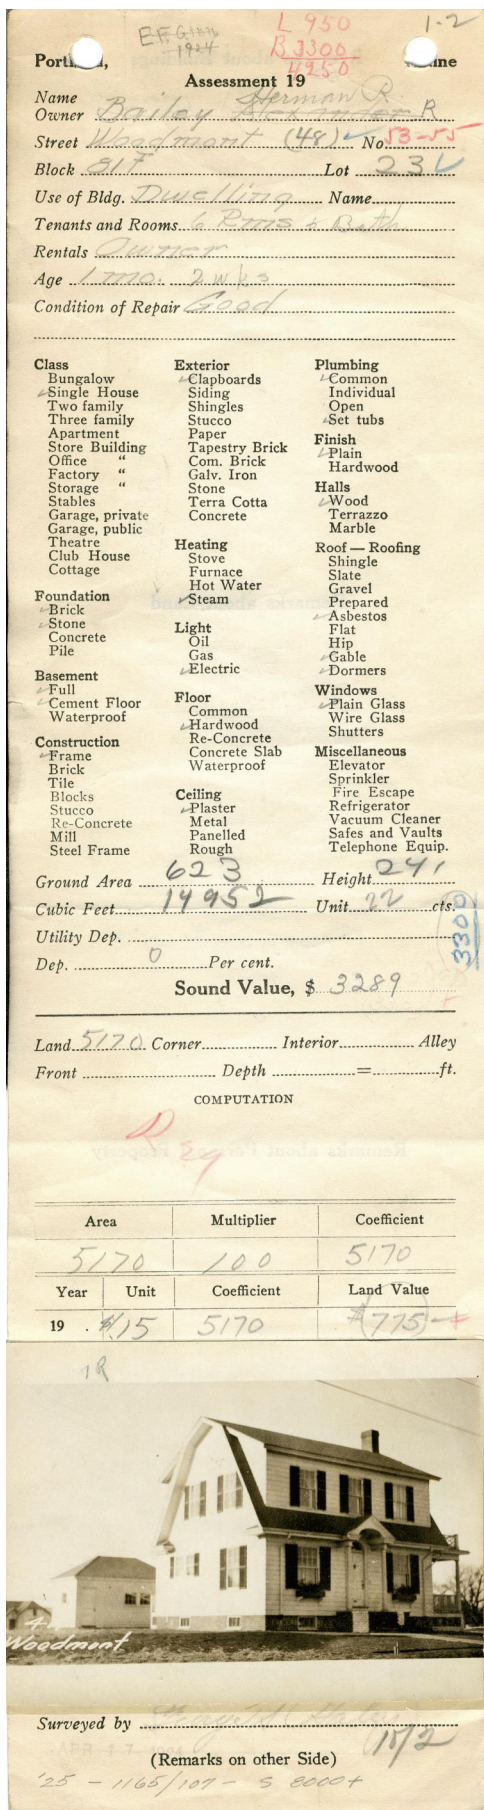 E.F. Ginn
1924
L 950
B 3300
4250
1-2
Portland, Maine
Assessment 19
Name Herman R.
Owner Bailey Alexander R
Street Woodmont (48) No 53-55
Block 81F Lot 23
Use of Bldg. Dwelling Name
Tenants and Rooms 6 Rms + Bath
Rentals Owner
Age 1 mo. 2 wks
Condition of Repair Good
Class
Bungalow
Single House
Two family
Three family
Apartment
Store Building
Office "
Factory "
Storage "
Stables
Garage, private
Garage, public
Theatre
Club House
Cottage
Foundation
Brick
Stone
Concrete
Pile
Basement
Full
Cement Floor
Waterproof
Construction
Frame
Brick
Tile
Blocks
Stucco
Re-Concrete
Mill
Steel Frame
Exterior
Clapboards
Siding
Shingles
Stucco
Paper
Tapestry Brick
Com. Brick
Galv. Iron
Stone
Terra Cotta
Concrete
Heating
Stove
Furnace
Hot Water
Steam
Light
Oil
Gas
Electric
Floor
Common
Hardwood
Re-Concrete
Concrete Slab
Waterproof
Ceiling
Plaster
Metal
Panelled
Rough
Plumbing
Common
Individual
Open
Set tubs
Finish
Plain
Hardwood
Halls
Wood
Terrazzo
Marble
Roof — Roofing
Shingle
Slate
Gravel
Prepared
Asbestos
Flat
Hip
Gable
Dormers
Windows
Plain Glass
Wire Glass
Shutters
Miscellaneous
Elevator
Sprinkler
Fire Escape
Refrigerator
Vacuum Cleaner
Safes and Vaults
Telephone Equip.
Ground Area 623 Height 24'
Cubic Feet 14952 Unit 22 cts.
3300
Utility Dep.
Dep. 0 Per cent.
Sound Value, $ 3289
Land 5170 Corner Interior Alley
Front Depth = ft.
COMPUTATION
Reg
Area Multiplier Coefficient
5170 100 5170
Year Unit Coefficient Land Value
19 . $.15 5170 $775
Woodmont
Surveyed by
15/2
(Remarks on other Side)
'25 - 1165/107 - S 8000+